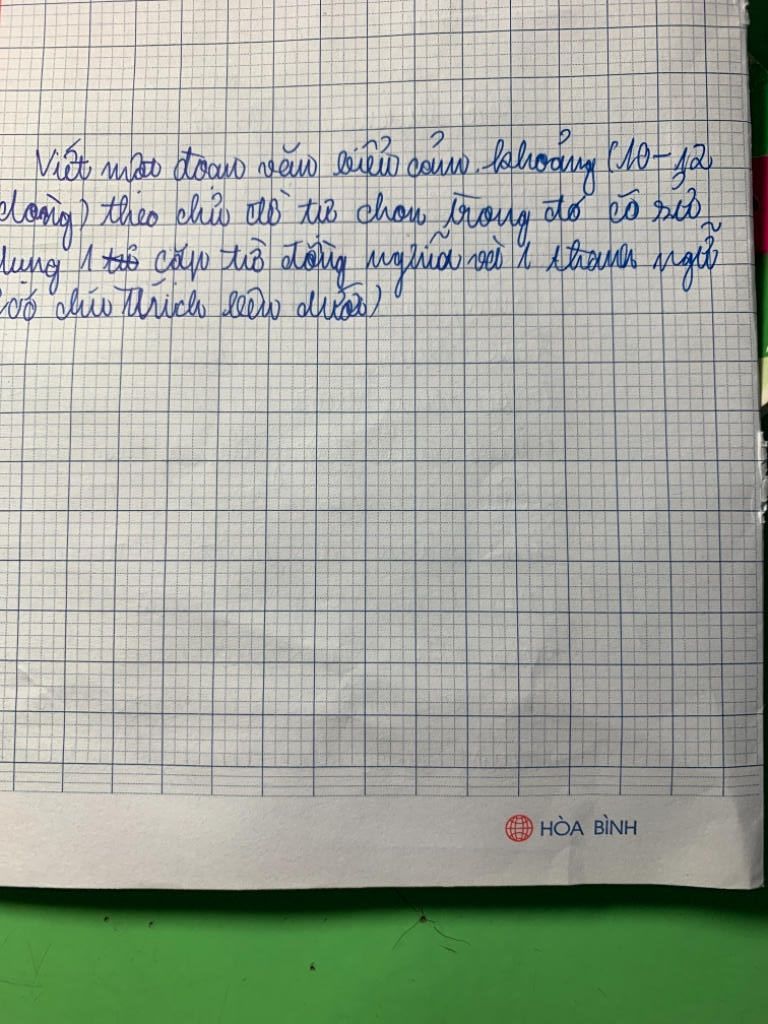 Viết một đoạn văn biểu cảm khoảng (10-12
dòng) theo chủ đề tự chọn trong đó có sử
dụng 1 cặp từ đồng nghĩa và 1 thành ngữ
(có chú thích bên dưới)
HÒA BÌNH